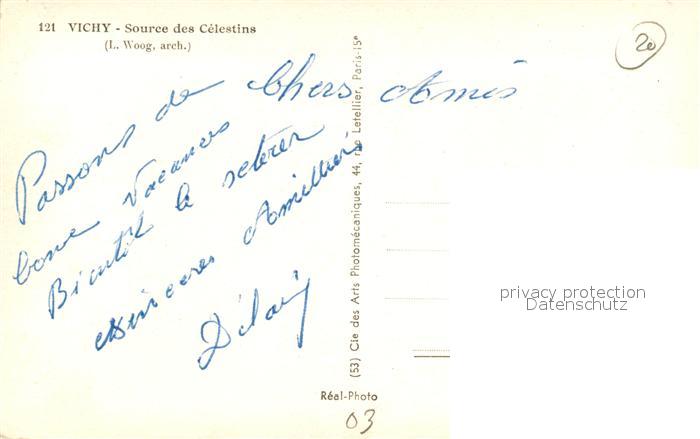 121 VICHY - Source des Célestins
(L. Woog, arch.)
20
Chers Amis
Passons de
bone Vacances
Bientôt le
sincères
(53) Cie des Arts Photomécaniques, 44, rue Letellier, Paris-15e
privacy protection
Datenschutz
Réal-Photo
03